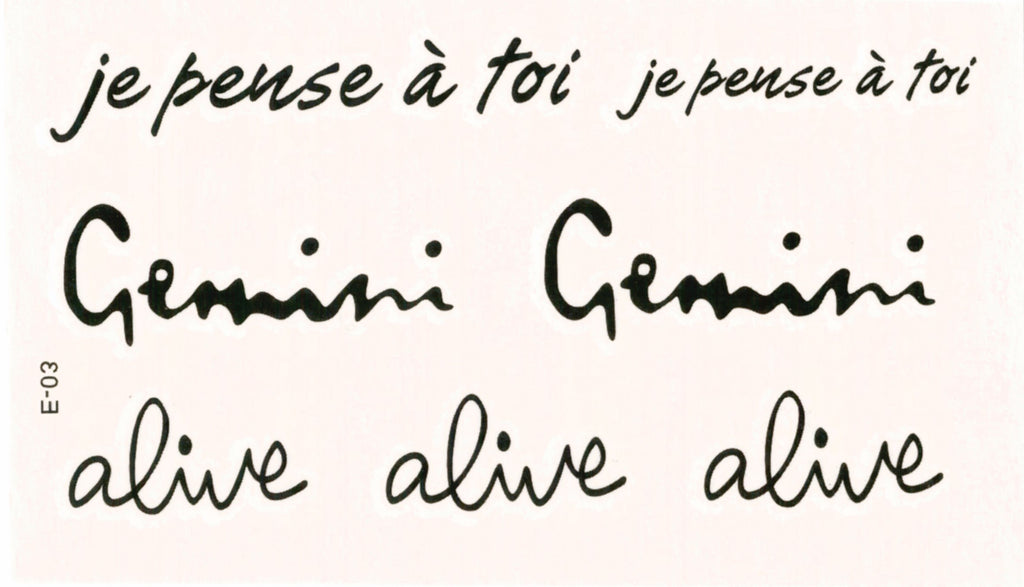 je pense à toi je pense à toi
Gemini Gemini
E-03
alive alive alive